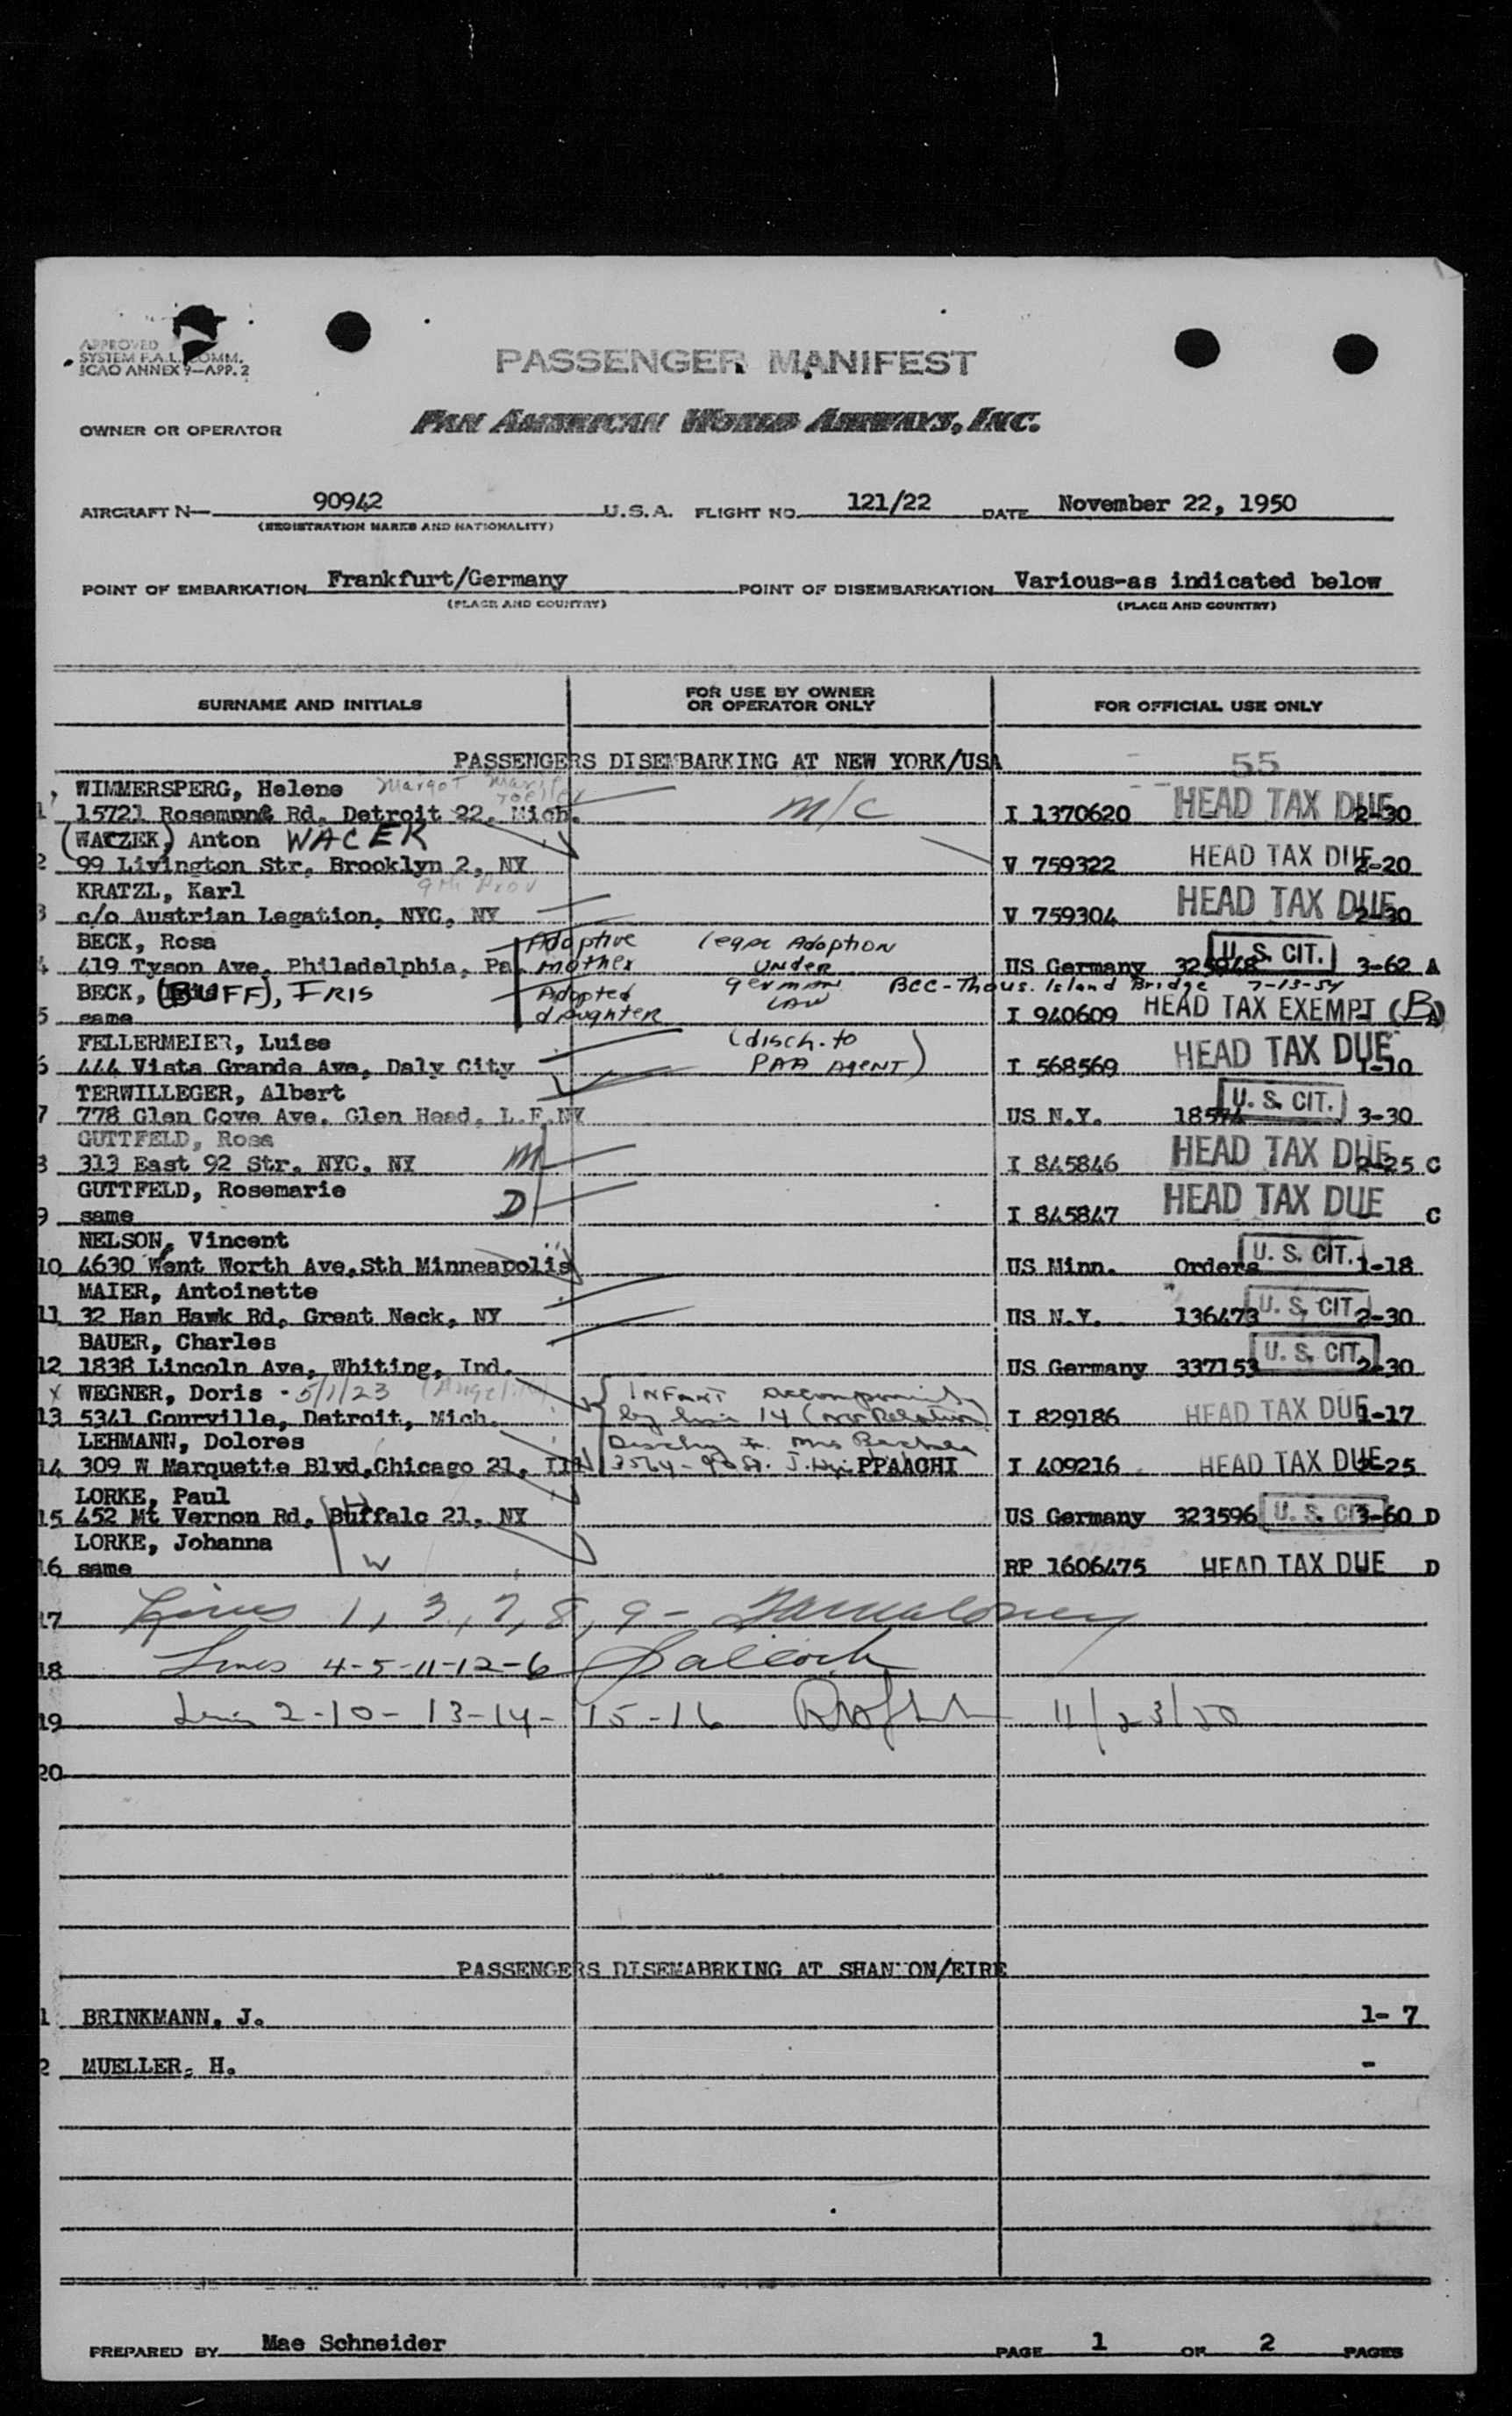 APPROVED
SYSTEM F.A.L. COMM.
ICAO ANNEX 9—APP. 2
PASSENGER MANIFEST
OWNER OR OPERATOR PAN AMERICAN WORLD AIRWAYS, INC.
AIRCRAFT N— 90942 U.S.A. FLIGHT NO. 121/22 DATE November 22, 1950
(REGISTRATION MARKS AND NATIONALITY)
POINT OF EMBARKATION Frankfurt/Germany POINT OF DISEMBARKATION Various-as indicated below
(PLACE AND COUNTRY) (PLACE AND COUNTRY)
SURNAME AND INITIALS FOR USE BY OWNER OR OPERATOR ONLY FOR OFFICIAL USE ONLY
PASSENGERS DISEMBARKING AT NEW YORK/USA 55
WIMMERSPERG, Helene Margot
1 15721 Rosemont Rd, Detroit 22, Mich. M/C I 1370620 HEAD TAX DUE 2-30
(WACZEK) Anton WACEK
2 99 Livington Str, Brooklyn 2, NY V 759322 HEAD TAX DUE 2-20
KRATZL, Karl
3 c/o Austrian Legation, NYC, NY V 759304 HEAD TAX DUE 2-30
BECK, Rosa Adoptive legal Adoption
4 419 Tyson Ave, Philadelphia, Pa. mother under US Germany U.S. CIT. 3-62 A
BECK, (BUFF), IRIS Adopted German Law BCC-Thous. Island Bridge 7-13-54
5 same daughter I 940609 HEAD TAX EXEMPT (B) A
FELLERMEIER, Luise (disch. to
6 444 Vista Grande Ave, Daly City PAA Agent) I 568569 HEAD TAX DUE 1-10
TERWILLEGER, Albert
7 778 Glen Cove Ave, Glen Head, L.I.NY US N.Y. U.S. CIT. 3-30
GUTTFELD, Rosa
8 313 East 92 Str, NYC, NY M I 845846 HEAD TAX DUE 2-25 C
GUTTFELD, Rosemarie
9 same D I 845847 HEAD TAX DUE C
NELSON, Vincent
10 4630 Went Worth Ave,Sth Minneapolis US Minn. Orders U.S. CIT. 1-18
MAIER, Antoinette
11 32 Han Hawk Rd, Great Neck, NY US N.Y. 136473 U.S. CIT. 2-30
BAUER, Charles
12 1838 Lincoln Ave, Whiting, Ind. US Germany 337153 U.S. CIT. 2-30
X WEGNER, Doris - 5/1/23 Infant accompanied
13 5341 Courville, Detroit, Mich. by line 14 (no relation) I 829186 HEAD TAX DUE 1-17
LEHMANN, Dolores
14 309 W Marquette Blvd,Chicago 21, Ill PPAACHI I 409216 HEAD TAX DUE 2-25
LORKE, Paul H
15 452 Mt Vernon Rd, Buffalo 21, NY US Germany 323596 U.S. CIT. 3-60 D
LORKE, Johanna
16 same W RP 1606475 HEAD TAX DUE D
17 Lines 1, 3, 7, 8, 9-
18 Lines 4-5-11-12-6
19 Lines 2-10-13-14-15-16 11/23/50
20
PASSENGERS DISEMABRKING AT SHANNON/EIRE
1 BRINKMANN, J. 1- 7
2 MUELLER, H. -
PREPARED BY Mae Schneider PAGE 1 OF 2 PAGES